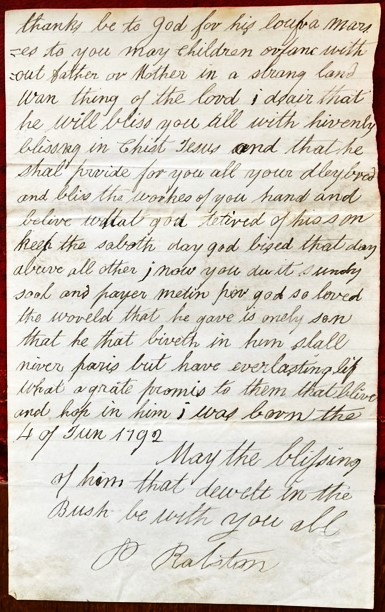 thanks be to God for his louf a mars
es to you may Children or fanc with
out father or Mother in a strang land
wan thing of the lord i dsair that
he will bliss you all with hivenly
blissing in Chist Jesus and that he
shal prvide for you all your dley bred
and blis the workes of you hand and
belive what god tetired of his son
keep the saboth day god blsed that day
above all other i now you du it sundy
sool and payer metin for god so loved
the woveld that he gave is onely son
that he that biveth in him shall
niver paris but have everlasting lif
what a grate promis to them that blive
and hop in him i was born the
4 of Jun 1792
May the blissing
of him that dewelt in the
Bush be with you all
P Ralston